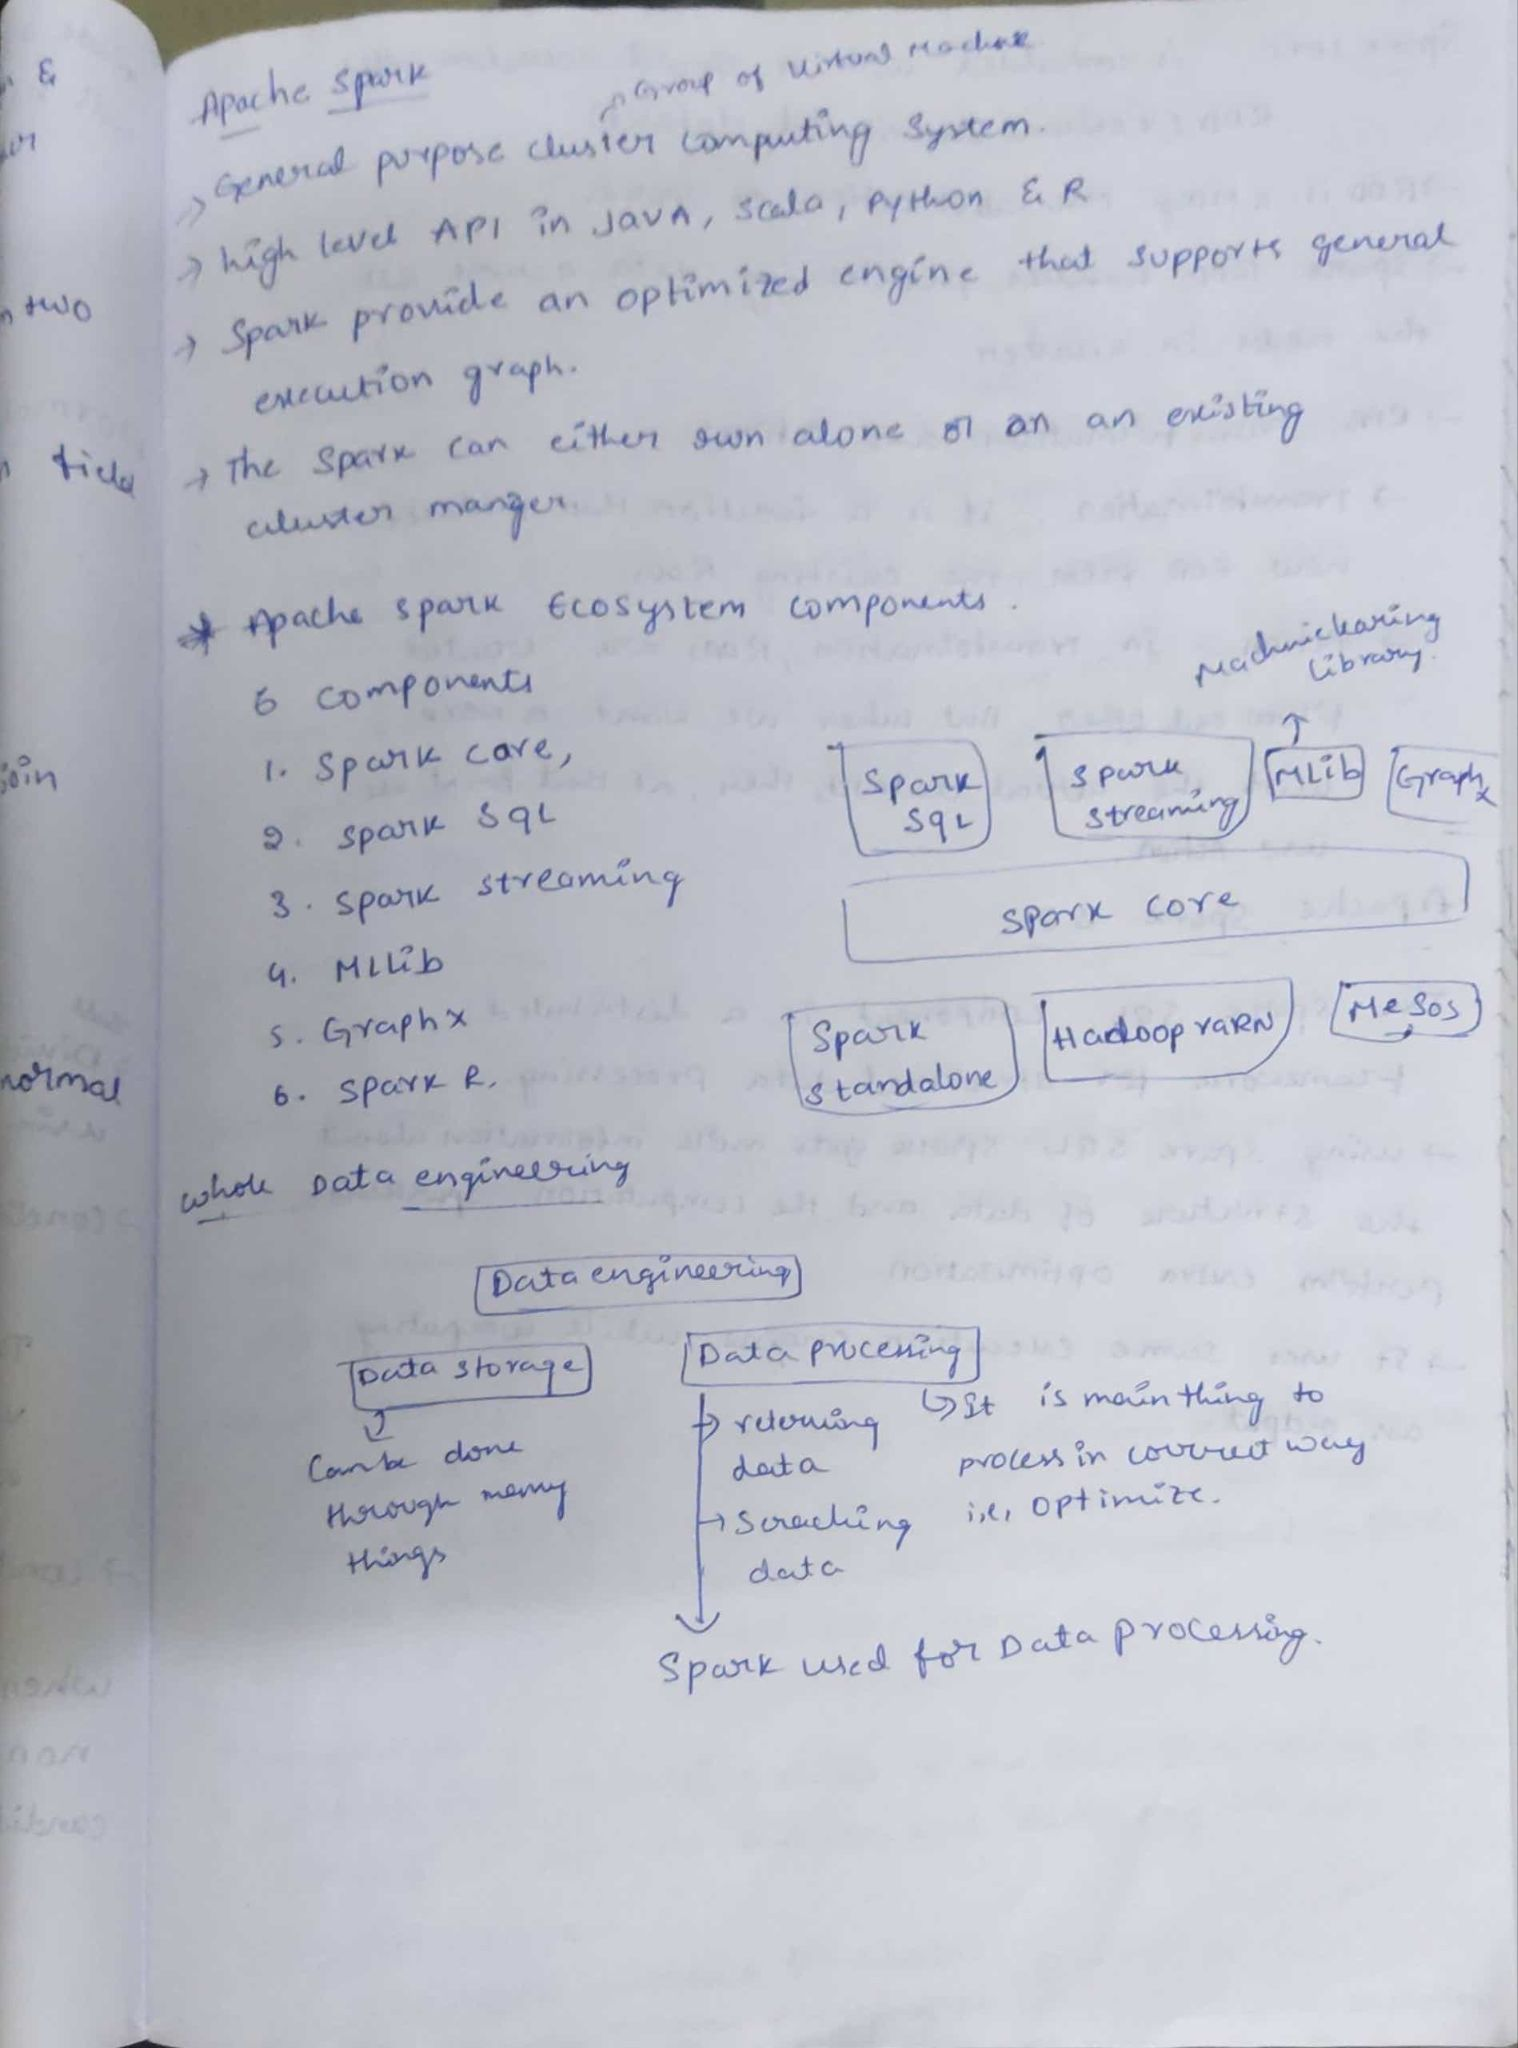 &
two
field
join
normal
Apache Spark
Group of Virtual Machine
→ General purpose cluster computing system.
→ high level API in JAVA, Scala, Python & R
→ Spark provide an optimized engine that supports general
execution graph.
→ The Spark can either run alone or on an existing
cluster manger
* Apache spark Ecosystem components.
6 components
1. Spark core,
2. Spark SQL
3. Spark streaming
4. MLlib
5. Graph x
6. Spark R.
Machine
library.
Spark SQL
Spark streaming
MLib
Graph x
Spark core
Spark standalone
Hadoop YARN
Mesos
whole Data engineering
Data engineering
Data storage
Data processing
Can be done
through many
things
→ returning
data
→ Seraching
data
↳ It is main thing to
process in correct way
i.e, optimize.
Spark used for Data processing.